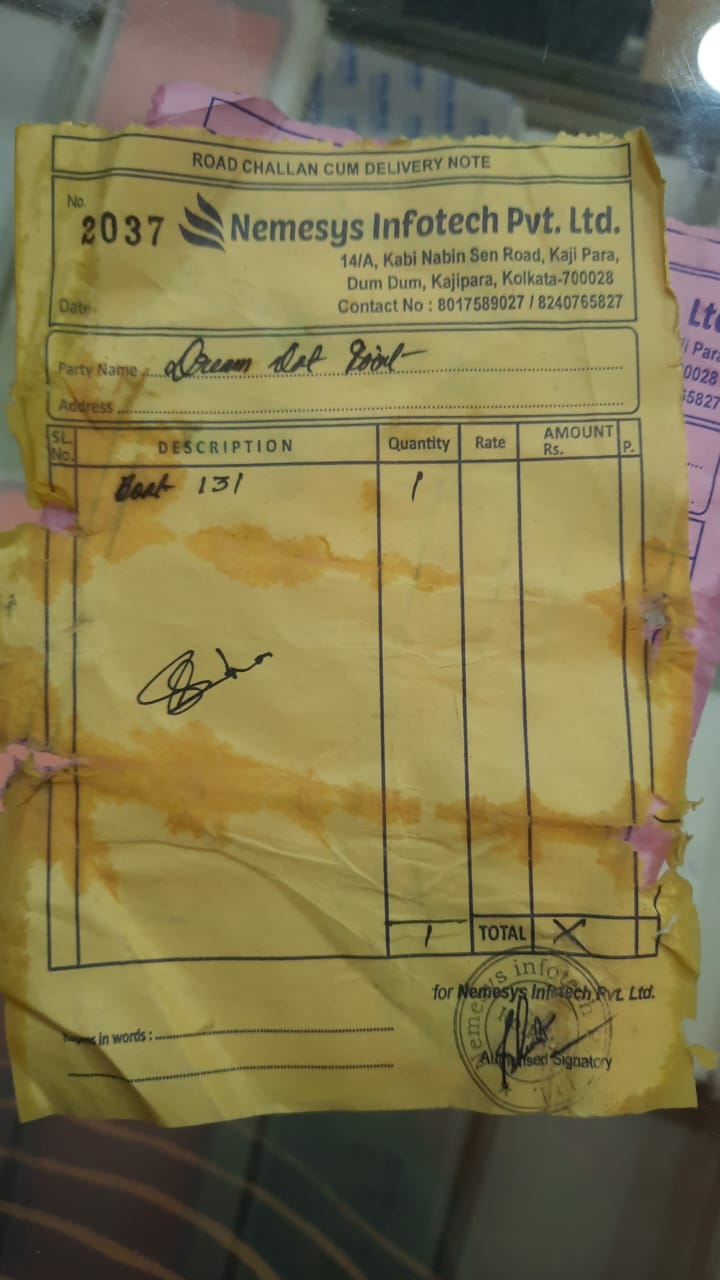 ROAD CHALLAN CUM DELIVERY NOTE
No.
2037
Nemesys Infotech Pvt. Ltd.
14/A, Kabi Nabin Sen Road, Kaji Para,
Dum Dum, Kajipara, Kolkata-700028
Contact No : 8017589027 / 8240765827
Date
Party Name Dream
Address
SL. No. DESCRIPTION Quantity Rate AMOUNT Rs. P.
131 1
1 TOTAL X
for Nemesys Infotech Pvt. Ltd.
in words :
Signatory
Lt
Para
0028
5827